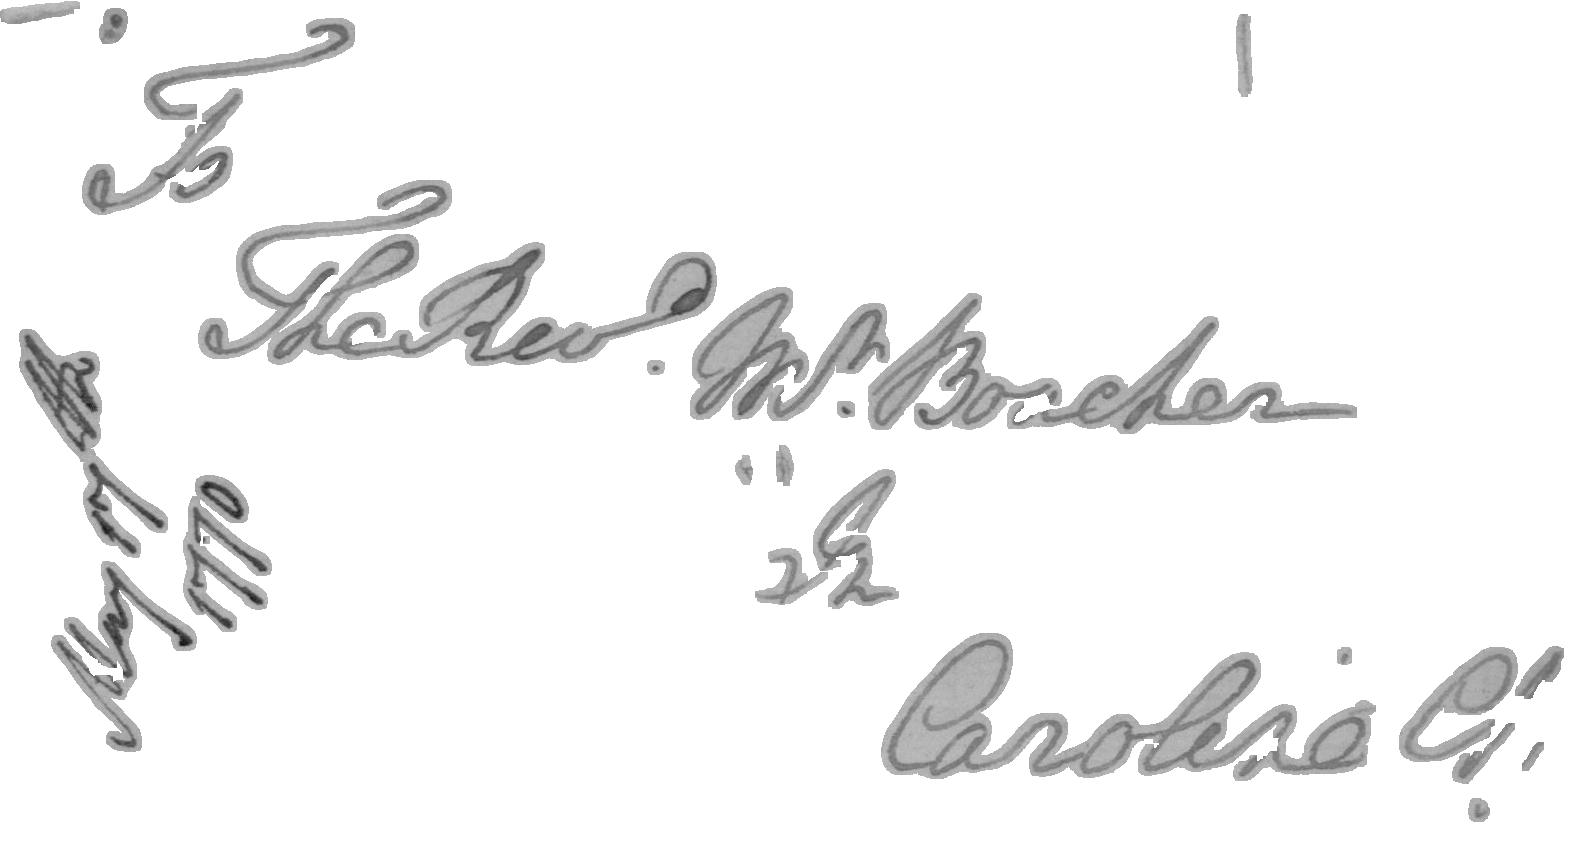 To
The Revd. Mr. Boucher
in
Caroline Cy.
May 17th
1770